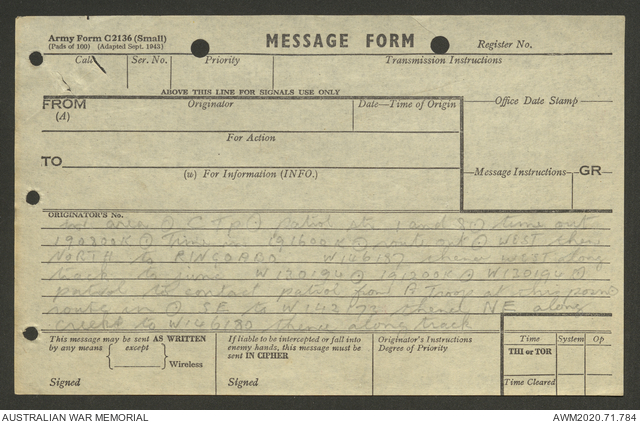 Army Form C2136 (Small)
(Pads of 100) (Adapted Sept. 1943)
MESSAGE FORM
Register No.
Call
Ser. No.
Priority
Transmission Instructions
ABOVE THIS LINE FOR SIGNALS USE ONLY
FROM
(A)
Originator
Date—Time of Origin
Office Date Stamp
For Action
TO
(W) For Information (INFO.)
Message Instructions
GR
ORIGINATOR'S No.
area C Tp patrol 1 and 8 time out
190800K Time in 191600K route out WEST thence
NORTH to W146157 thence WEST along
track to W130194 191200K W130194
patrol to contact patrol from A Troop at this point
route in SE to thence NE along
creek to W146130 thence along track
This message may be sent AS WRITTEN
by any means except
Wireless
Signed
If liable to be intercepted or fall into
enemy hands, this message must be
sent IN CIPHER
Signed
Originator's Instructions
Degree of Priority
Time
System
Op
THI or TOR
Time Cleared
AUSTRALIAN WAR MEMORIAL
AWM2020.71.784